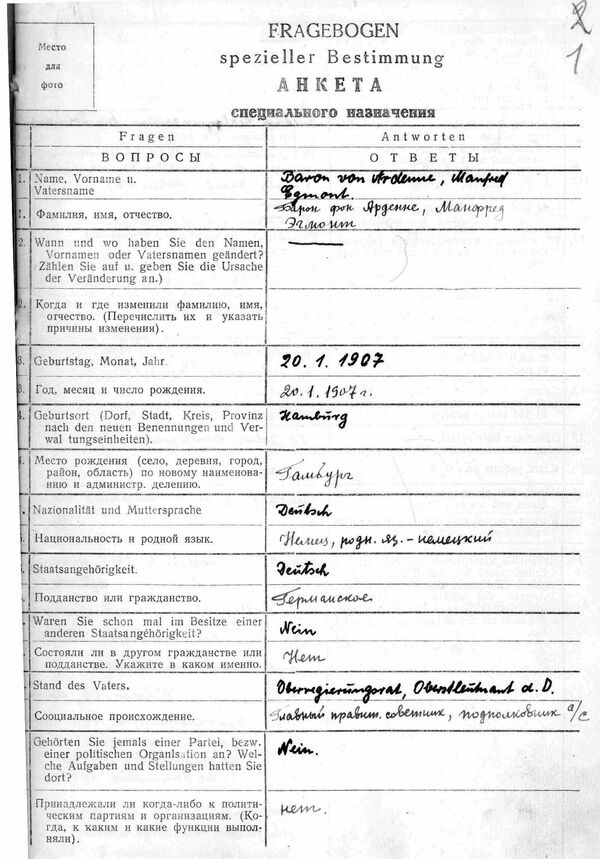 2
1
Место
для
фото
FRAGEBOGEN
spezieller Bestimmung
АНКЕТА
специального назначения
Fragen
Antworten
ВОПРОСЫ
ОТВЕТЫ
1. Name, Vorname u.
Vatersname
Baron von Ardenne, Manfred
Egmont.
1. Фамилия, имя, отчество.
Барон фон Арденне, Манфред
Эгмонт
2. Wann und wo haben Sie den Namen,
Vornamen oder Vatersnamen geändert?
(Zählen Sie auf u. geben Sie die Ursache
der Veränderung an.)
2. Когда и где изменили фамилию, имя,
отчество. (Перечислить их и указать
причины изменения).
3. Geburtstag, Monat, Jahr
20. 1. 1907
3. Год, месяц и число рождения.
20.1.1907 г.
4. Geburtsort (Dorf, Stadt, Kreis, Provinz
nach den neuen Benennungen und Ver-
wal tungseinheiten).
Hamburg
4. Место рождения (село, деревня, город,
район, область) по новому наименова-
нию и администр. делению.
Гамбург
Nazionalität und Muttersprache
Deutsch
Национальность и родной язык.
Немец, родн. яз. - немецкий
Staatsangehörigkeit.
Deutsch
Подданство или гражданство.
Германское
Waren Sie schon mal im Besitze einer
anderen Staatsangéhörigkeit?
Nein
Состояли ли в другом гражданстве или
подданстве. Укажите в каком именно.
Нет
Stand des Vaters.
Oberregierungsrat, Oberstleutnant a. D.
Сооциальное происхождение.
Главный правит. советник, подполковник в/с
Gehörten Sie jemals einer Partei, bezw.
einer politischen Organlsation an? Wel-
che Aufgaben und Stellungen hatten Sie
dort?
Nein.
Принадлежали ли когда-либо к полити-
ческим партиям и организациям. (Ко-
гда, к каким и какие функции выпол-
няли).
нет.